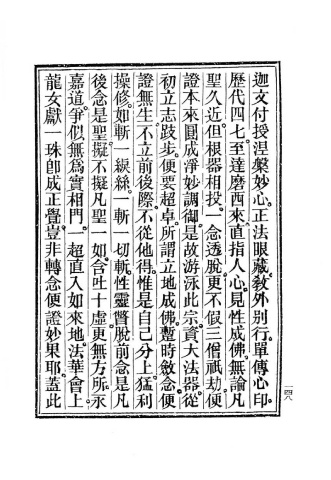 迦文付授涅槃妙心。正法眼藏。敎外别行。單傳心印。
歷代四七。至達磨西來。直指人心。見性成佛。無論凡
聖久近。但根器相投。一念透脫。更不假三僧祇劫。便
證本來圓成淨妙調御。是故游泳此宗。資大法器。從
初立志跂步。便要超卓。所謂立地成佛。蹔時斂念。便
證無生。不立前後際。不從他得。惟是自己分上猛利
操修。如斬一綟絲。一斬一切斬。性靈瞥脫。前念是凡
後念是聖。擬不擬凡聖一如。含吐十虛。更無方所。永
嘉道。爭似無爲實相門。一超直入如來地。法華會上
龍女獻一珠。卽成正覺。豈非轉念便證妙果耶。蓋此
一四八